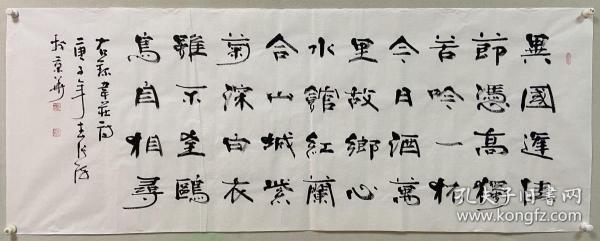 異國逢佳
節憑高獨
苦吟一杯
今日酒萬
里故鄉心
水館紅蘭
合山城紫
菊深白衣
雖不至鷗
鳥自相尋
右錄韋莊詩
庚子年
於京華
孔夫子旧书网
www.kongfz.com